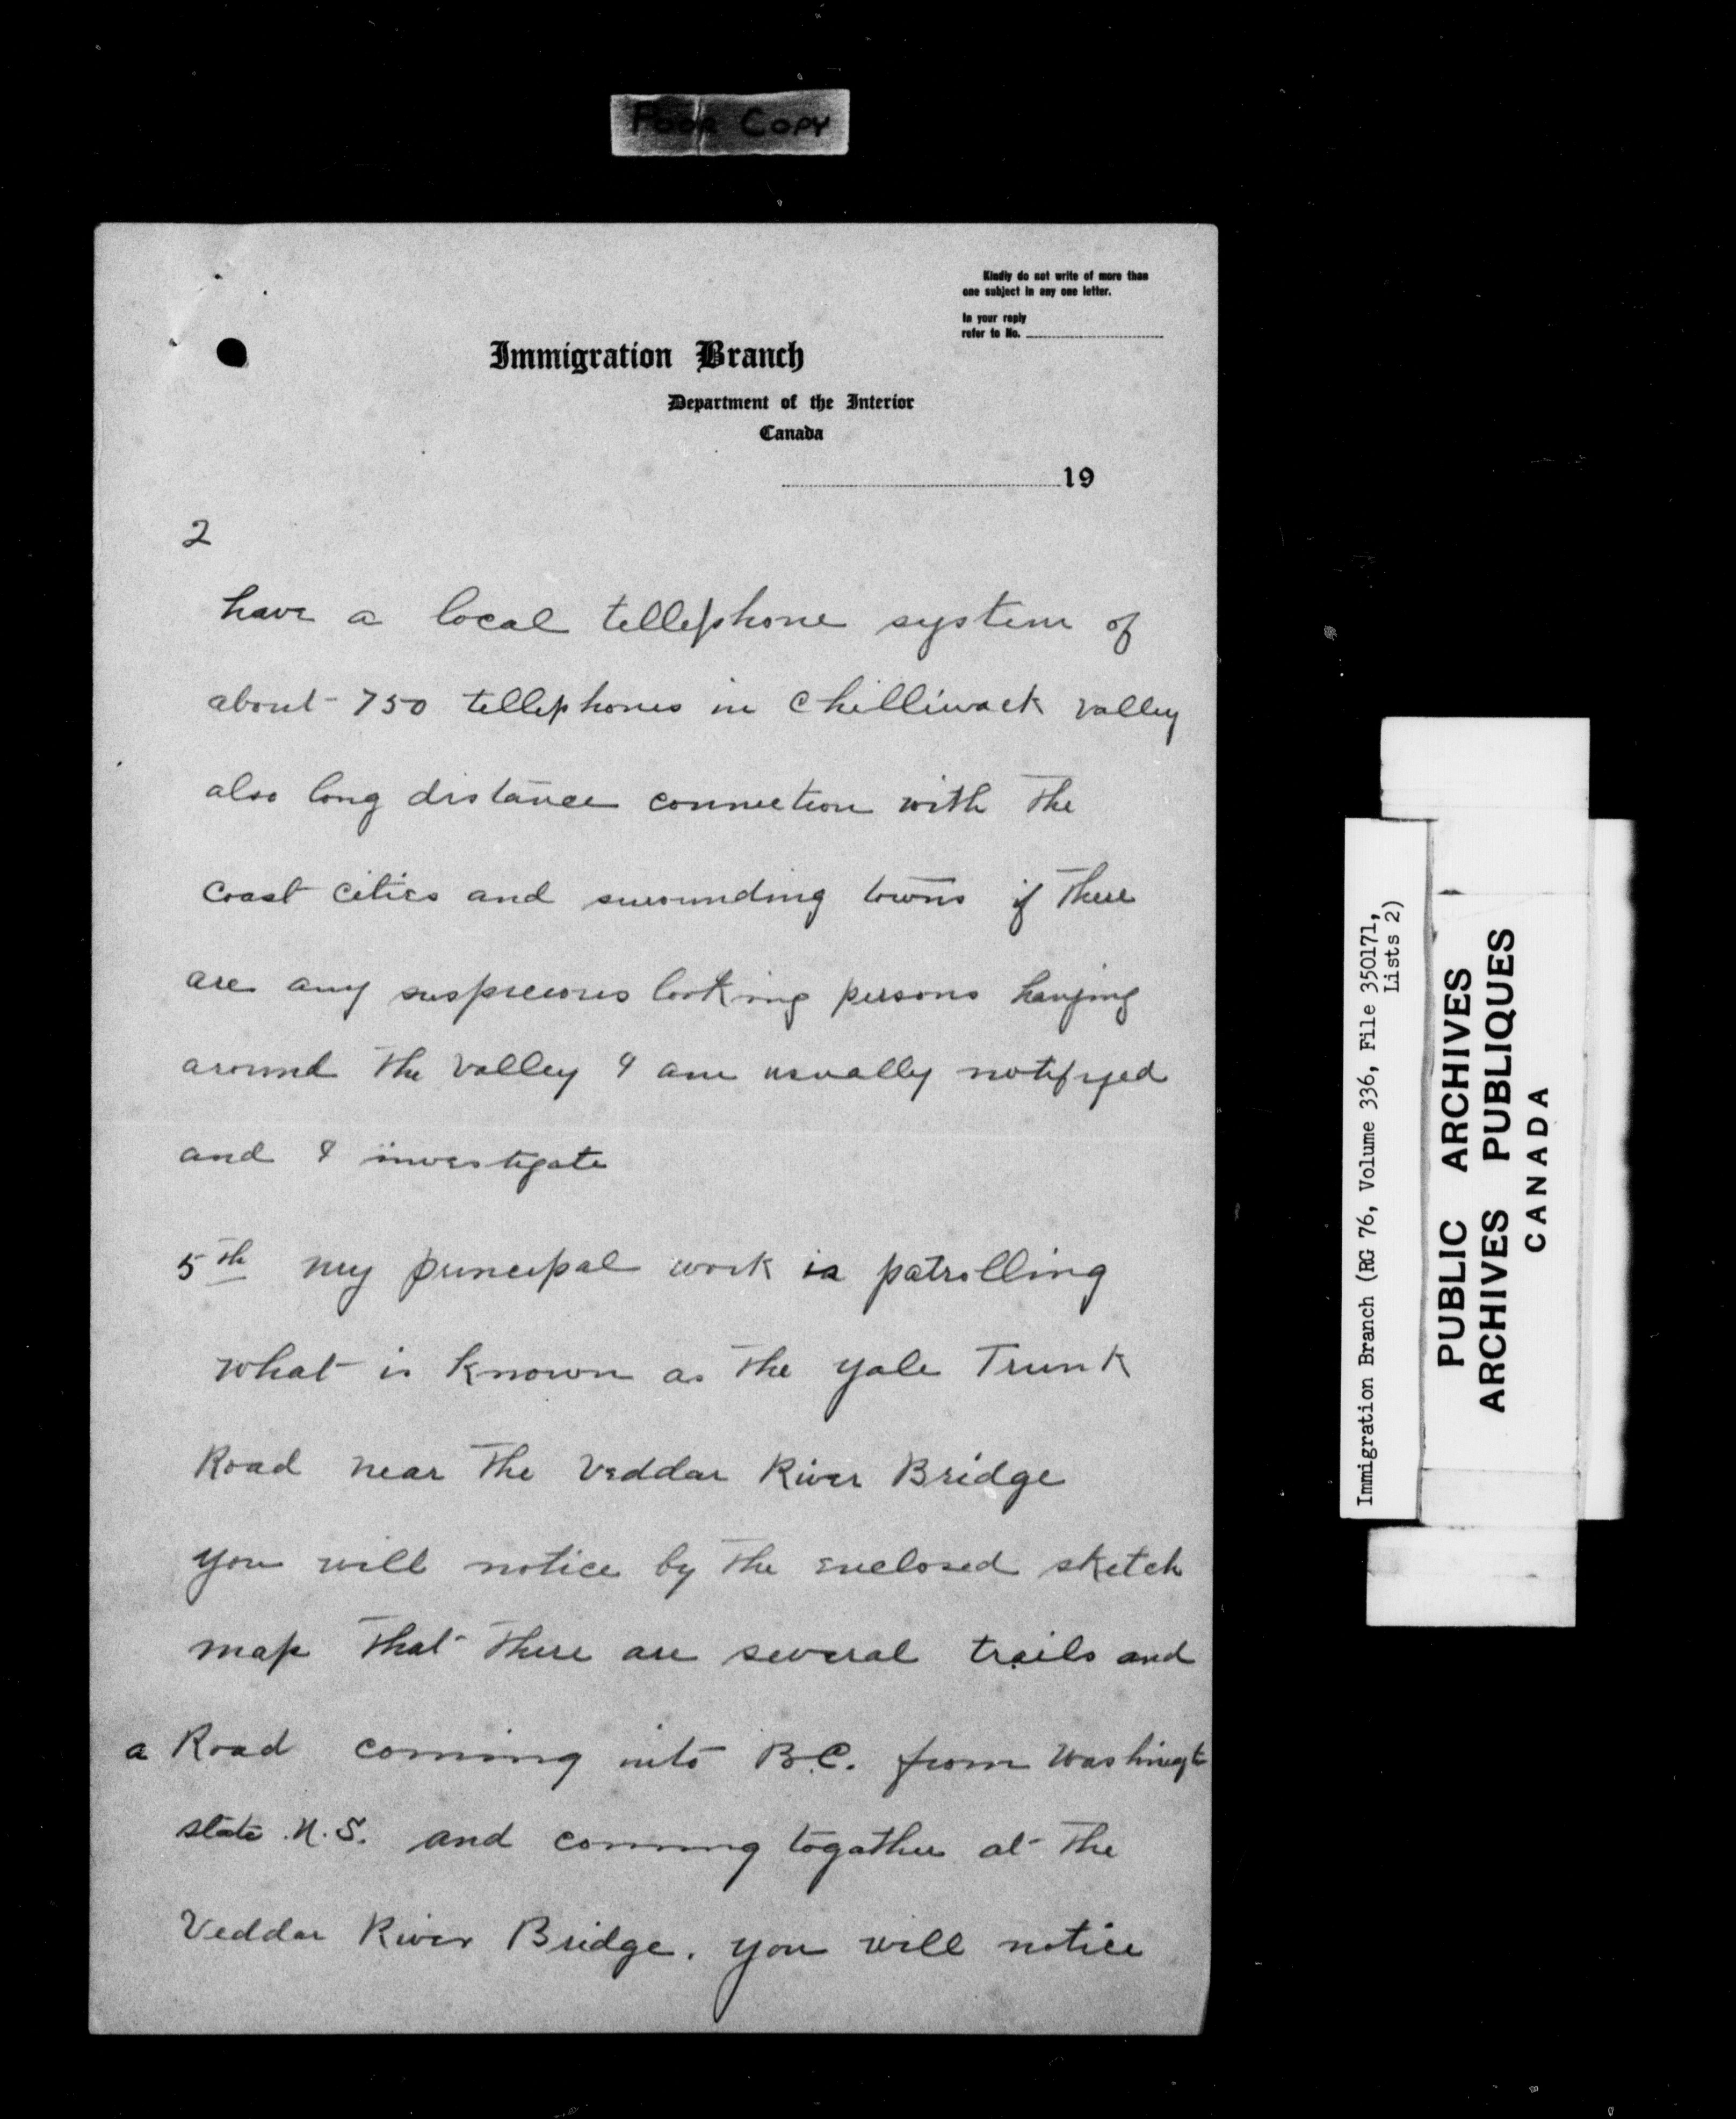 Poor Copy
Kindly do not write of more than
one subject in any one letter.
In your reply
refer to No.
Immigration Branch
Department of the Interior
Canada
19
2
have a local tellephone system of
about 750 tellephones in Chilliwack valley
also long distance connection with the
coast cities and surounding towns if there
are any suspecious looking persons hanging
around the valley I am usually notifyed
and I investigate
5th my principal work is patrolling
what is known as the Yale Trunk
Road near the Veddar River Bridge
you will notice by the enclosed sketch
map that there are several trails and
a Road coming into B.C. from Washingt
state U.S. and coming together at the
Veddar River Bridge. you will notice
Immigration Branch (RG 76, Volume 336, File 350171,
Lists 2)
PUBLIC ARCHIVES
ARCHIVES PUBLIQUES
CANADA